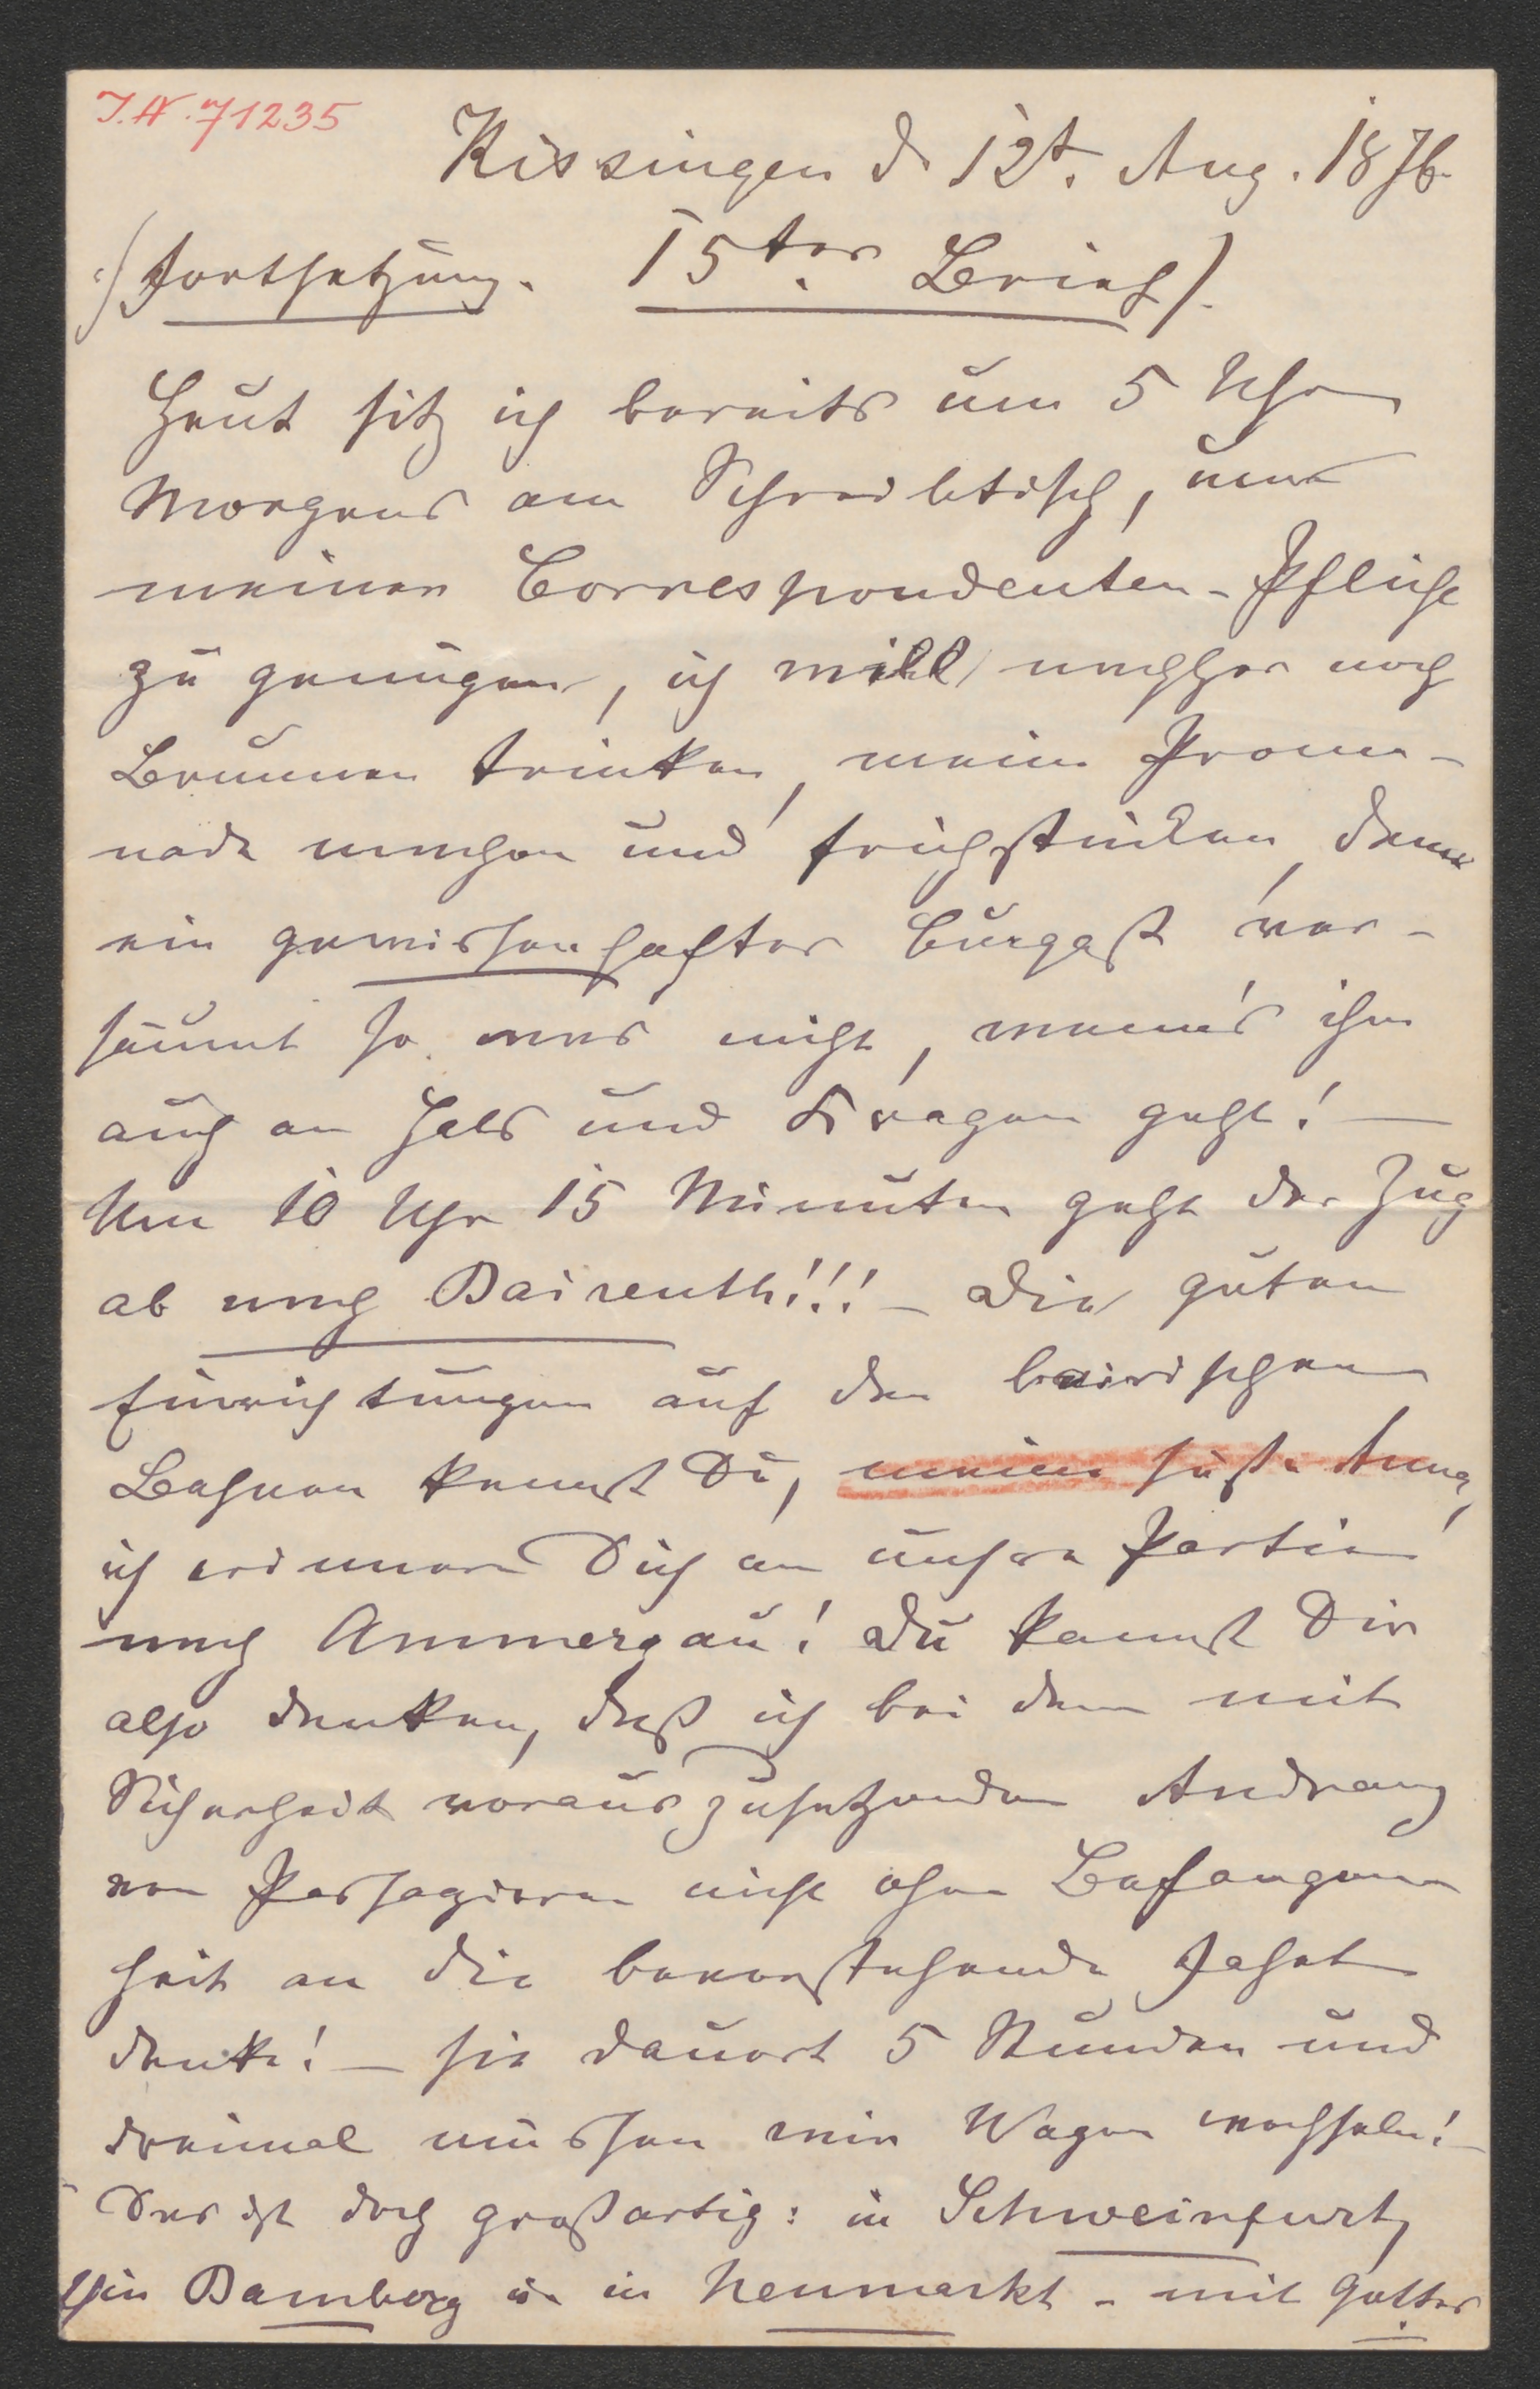 I.N. 71235
Kissingen d 12t. Aug. 1876.
:/ Fortsetzung. 15ter. Brief /.
Heut sitz ich bereits um 5 Uhr
Morgens am Schreibtisch, um
meiner Correspondenten-Pflicht
zu genügen, ich will nachher noch
Brunnen trinken, meine Prome-
nade machen und frühstücken, denn
ein gewissenhafter Curgast ver-
säumt so was nicht, wenn's ihm
auch an Hals und Kragen geht! —
Um 10 Uhr 15 Minuten geht der Zug
ab nach Baireuth!!! — Die guten
Einrichtungen auf den bairischen
Bahnen kennst Du, meine süße Anna,
ich erinnere Dich an unsre Partie
nach Ammergau! Du kannst Dir
also denken, daß ich bei dem mit
Sicherheit vorauszusetzenden Andrang
von Passagieren nicht ohne Befangen
heit an die bevorstehende Fahrt
denke! — sie dauert 5 Stunden und
dreimal müssen wir Wagen wechseln! —
Das ist doch großartig: in Schweinfurt,
in Bamberg u. in Neumarkt - mit Gottes